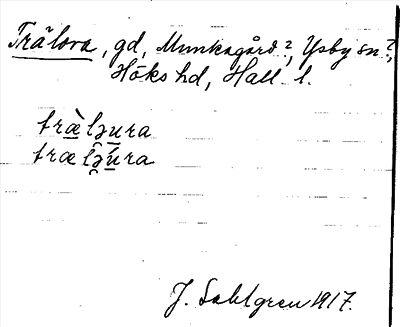 Trälova, gd, Munkagård?, Ysby sn?,
Höks hd, Hall. l.
træ̀ljura
træljúra
J. Sahlgren 1917.